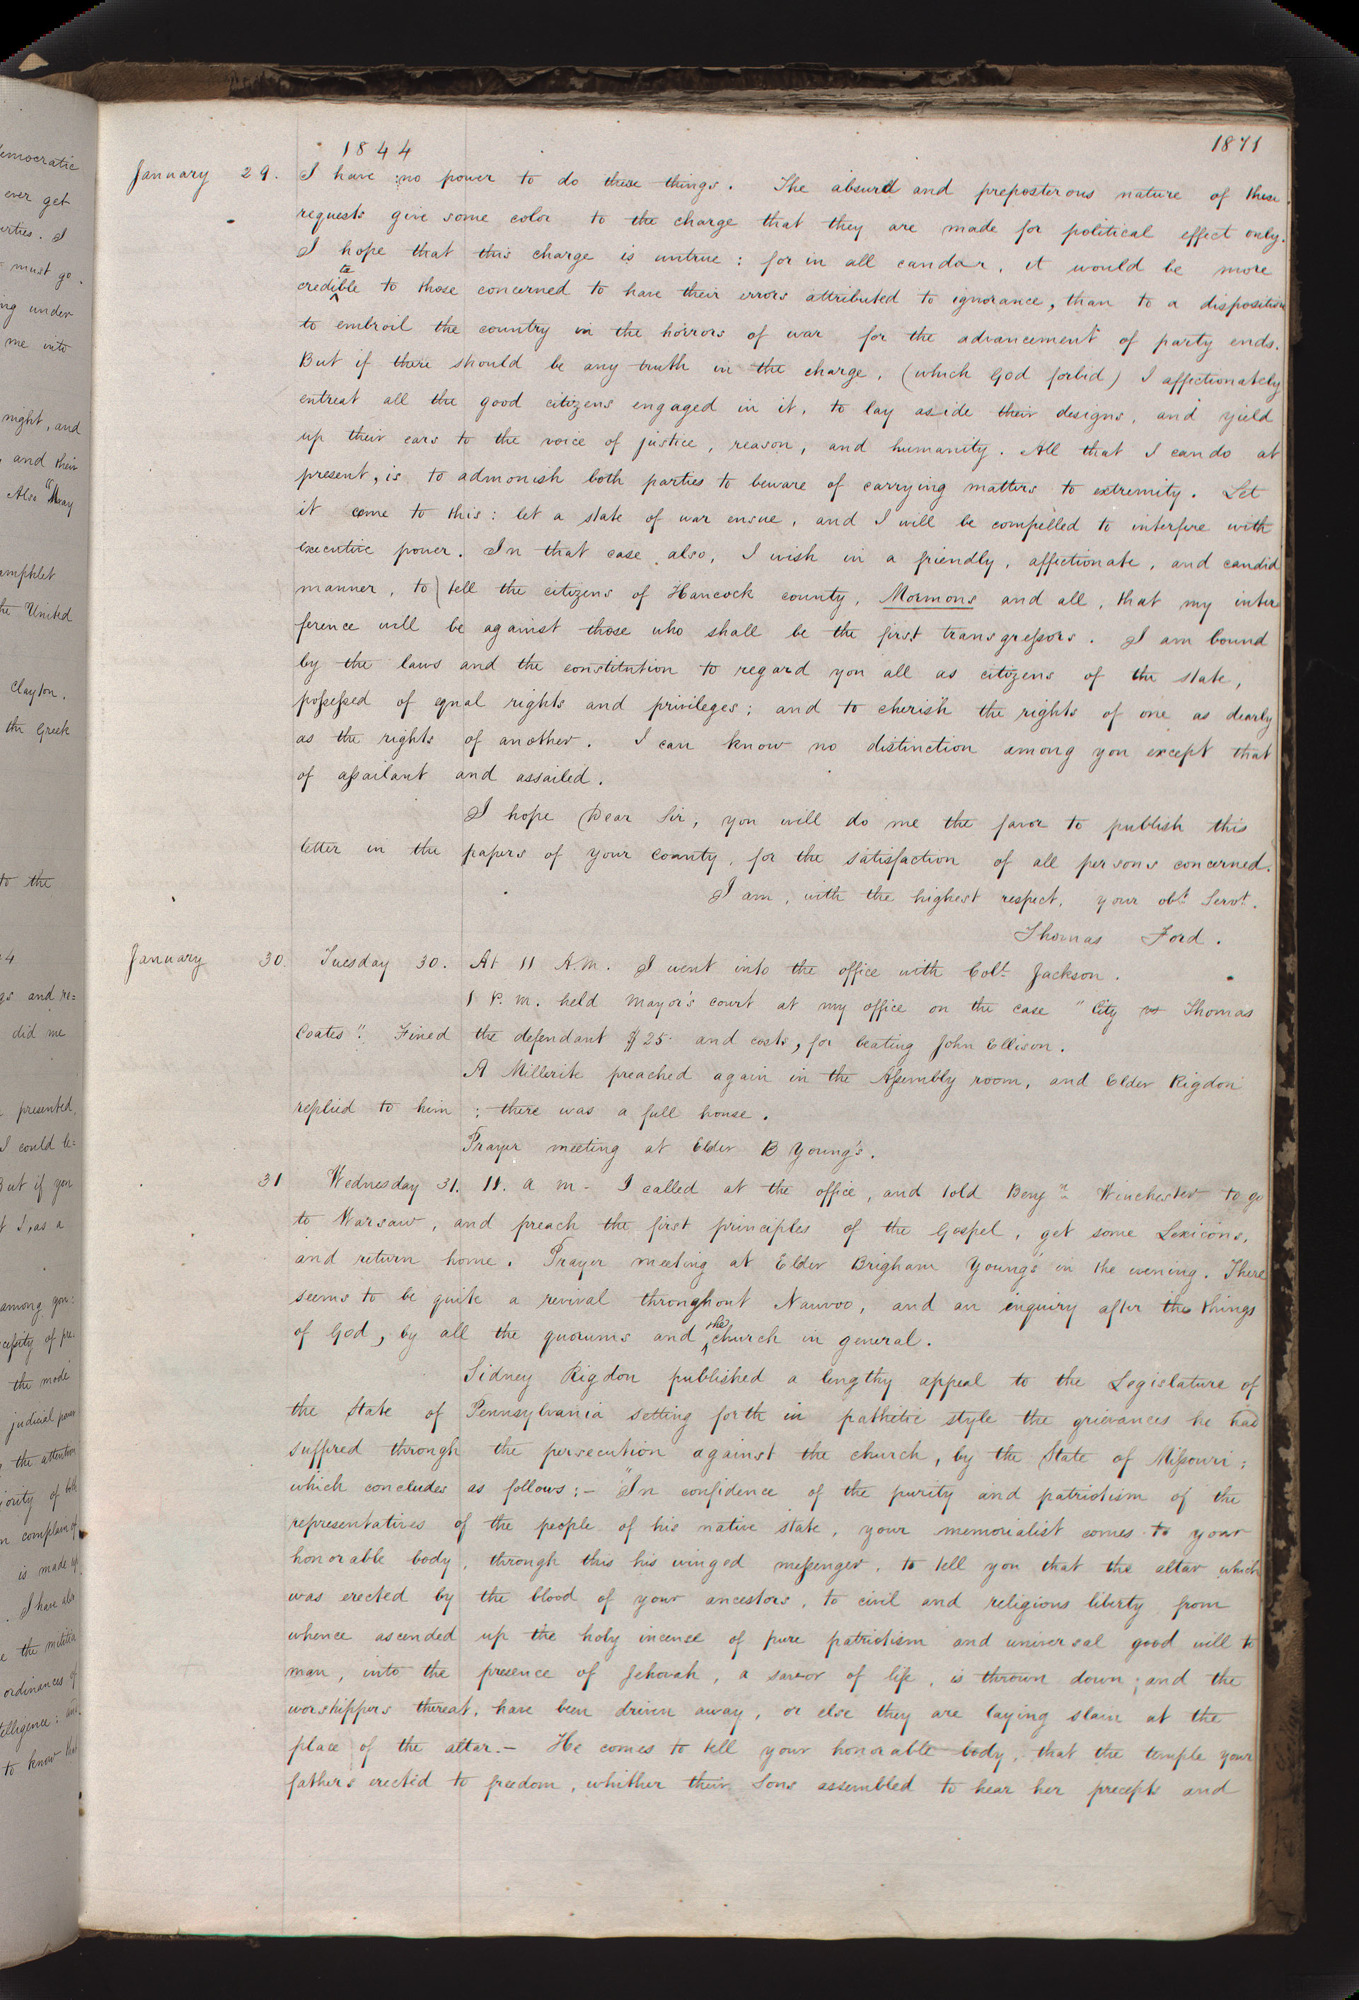 1844
1871
January 29. I have no power to do these things. The absurd and preposterous nature of these
requests give some color to the charge that they are made for political effect only.
I hope that this charge is untrue: for in all candor, it would be more
creditable to those concerned to have their errors attributed to ignorance, than to a disposition
to embroil the country in the horrors of war for the advancement of party ends.
But if there should be any truth in the charge, (which God forbid) I affectionately
entreat all the good citizens engaged in it, to lay aside their designs, and yield
up their ears to the voice of justice, reason, and humanity. All that I can do at
present, is to admonish both parties to beware of carrying matters to extremity. Let
it come to this: let a state of war ensue, and I will be compelled to interfere with
executive power. In that case also, I wish in a friendly, affectionate, and candid
manner, to tell the citizens of Hancock county, Mormons and all, that my inter
ference will be against those who shall be the first transgressors. I am bound
by the laws and the constitution to regard you all as citizens of the state,
possessed of equal rights and privileges; and to cherish the rights of one as dearly
as the rights of another. I can know no distinction among you except that
of assailant and assailed.
I hope Dear Sir, you will do me the favor to publish this
letter in the papers of your county, for the satisfaction of all persons concerned.
I am, with the highest respect, your obt. Servt.
Thomas Ford.
January 30. Tuesday 30. At 11 A.M. I went into the office with Colt. Jackson.
1 P.M. held Mayor's court at my office on the case "City vs Thomas
Coates". Fined the defendant $25 and costs, for beating John Ellison.
A Millerite preached again in the Assembly room, and Elder Rigdon
replied to him; there was a full house.
Prayer meeting at Elder B Young's.
31 Wednesday 31. 11. a m- I called at the office, and told Benjn. Winchester to go
to Warsaw, and preach the first principles of the Gospel, get some Lexicons,
and return home. Prayer meeting at Elder Brigham Young's in the evening. There
seems to be quite a revival throughout Nauvoo, and an inquiry after the things
of God, by all the quorums and the church in general.
Sidney Rigdon published a lengthy appeal to the Legislature of
the State of Pennsylvania setting forth in pathetic style the grievances he had
suffered through the persecution against the church, by the State of Missouri;
which concludes as follows:- "In confidence of the purity and patriotism of the
representatives of the people of his native state, your memorialist comes to your
honorable body, through this his winged messenger, to tell you that the altar which
was erected by the blood of your ancestors, to civil and religious liberty from
whence ascended up the holy incense of pure patriotism and universal good will to
man, into the presence of Jehovah, a savor of life, is thrown down; and the
worshippers thereat, have been driven away, or else they are laying slain at the
place of the altar.- He comes to tell your honorable body, that the temple your
fathers erected to freedom, whither their Sons assembled to hear her precepts and